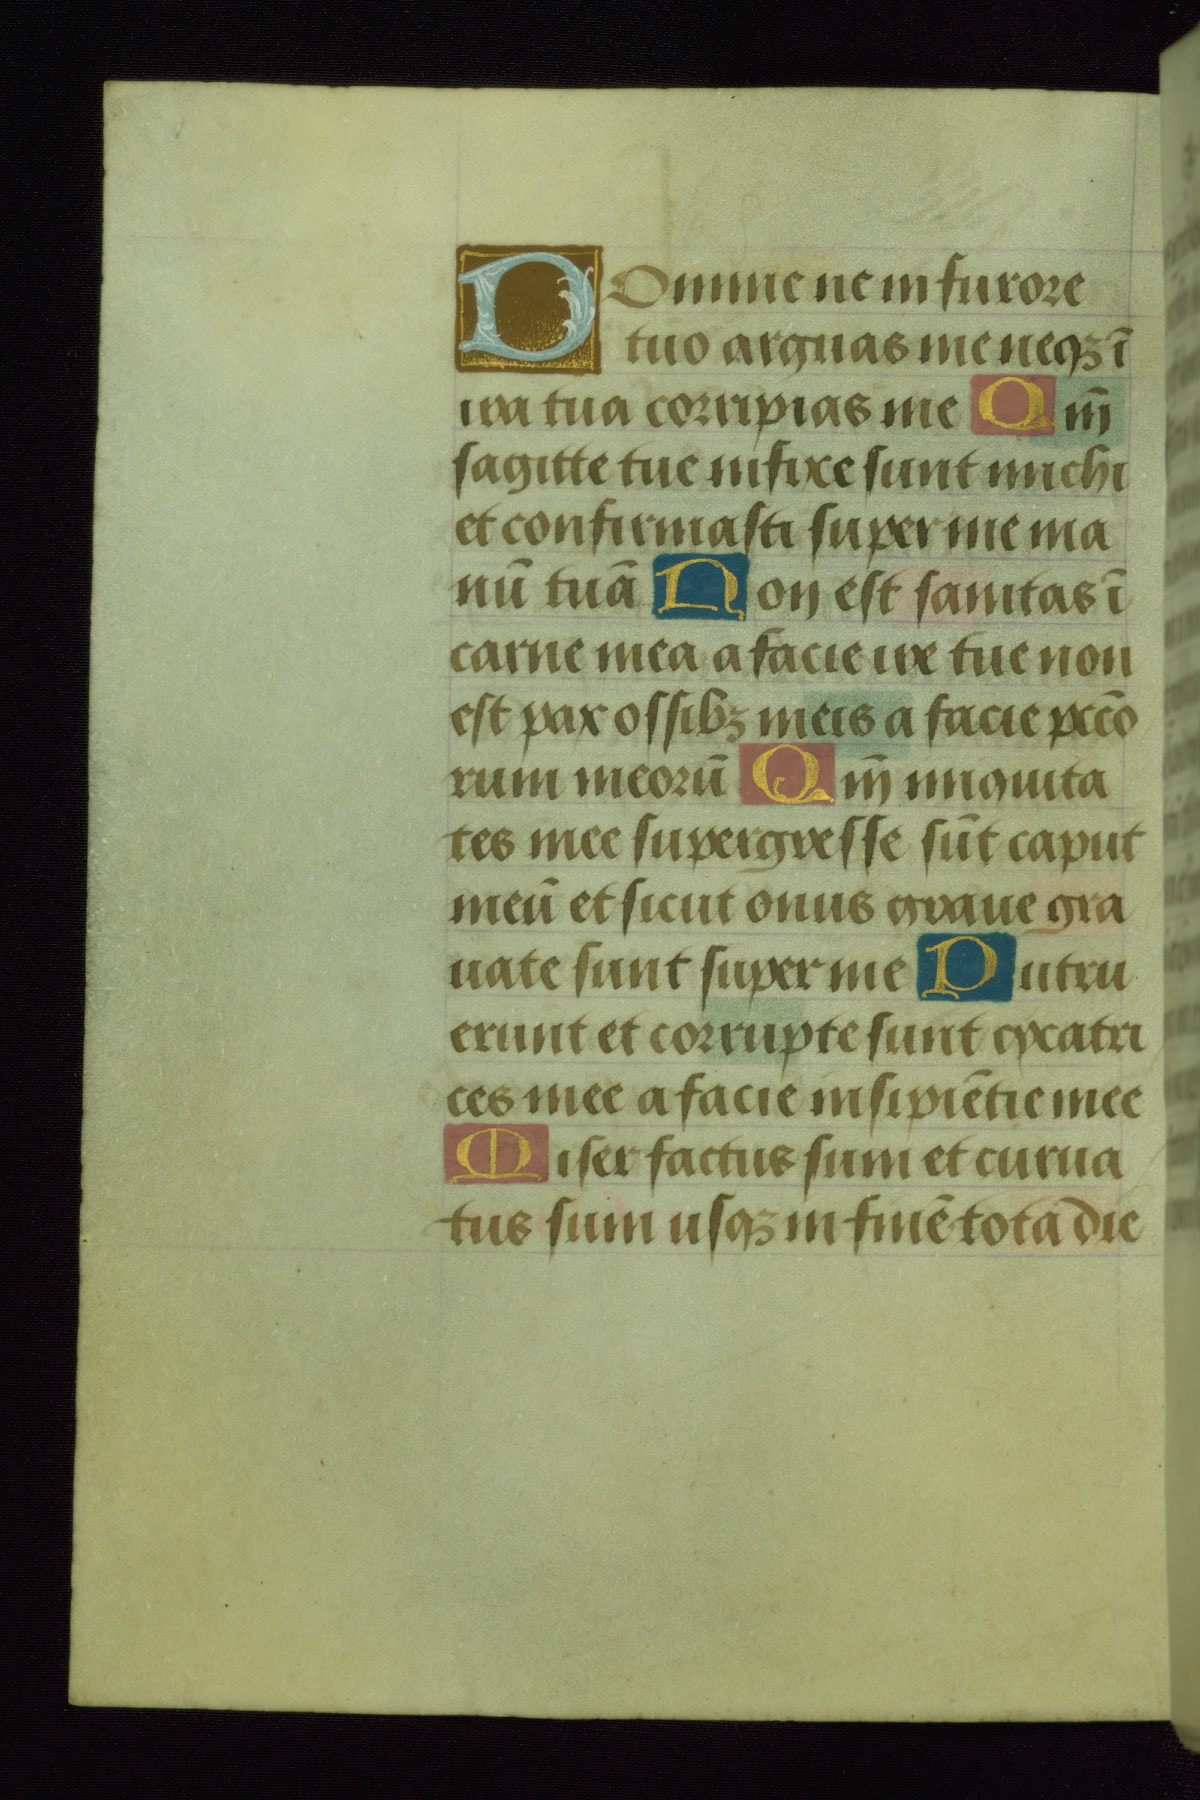 DOmine ne in furore
tuo arguas me neqꝫ ī
ira tua corripias me Qm̄
sagitte tue infixe sunt michi
et confirmasti super me ma
nū tuā Non est sanitas ī
carne mea a facie ire tue non
est pax ossibꝫ meis a facie pctō
rum meorū Qm̄ iniquita
tes mee supergresse sūt caput
meū et sicut onus graue gra
uate sunt super me Putru
erunt et corrupte sunt cycatri
ces mee a facie insipiētie mee
Miser factus sum et curua
tus sum usqꝫ in finē tota die